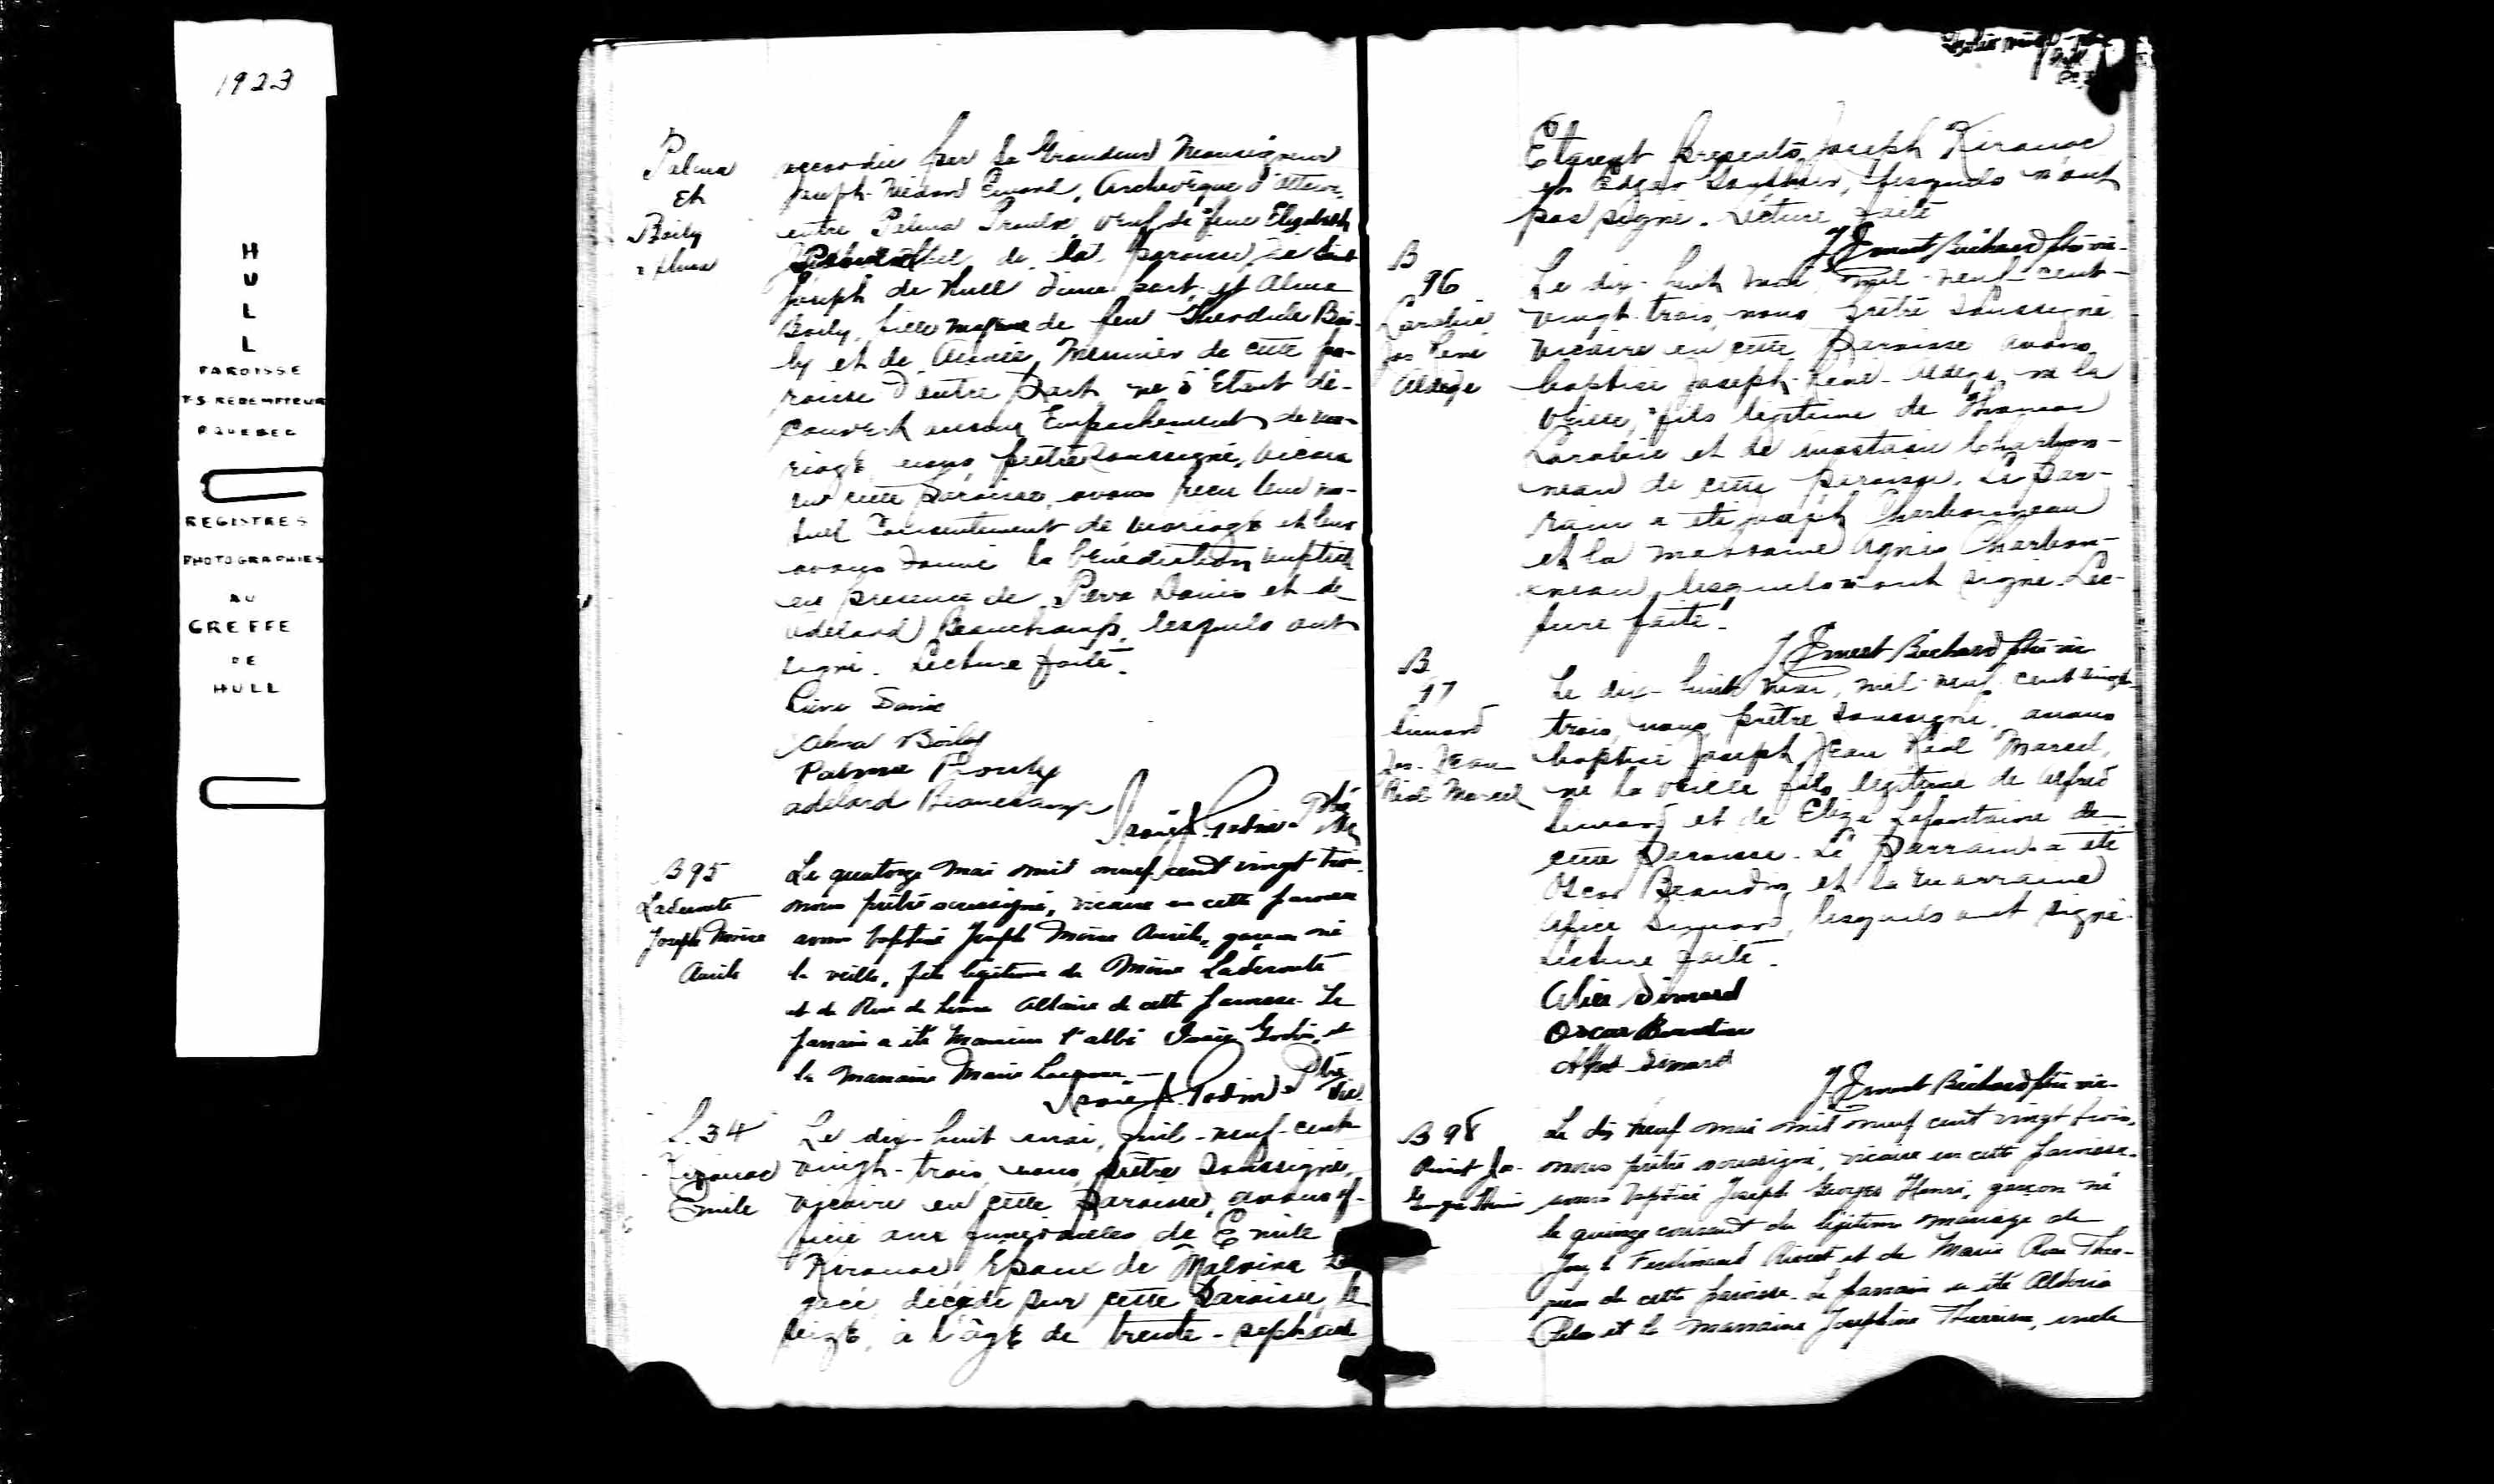 1923
HULL
PAROISSE
T-S REDEMPTEUR
P QUEBEC
REGISTRES
PHOTOGRAPHIES
AU
GREFFE
DE
HULL
Palma
Et
Boily
Alma
accordée par Sa Grandeur Monseigneur
Joseph-Médard Emard, Archevêque d'Ottawa
entre Palma Proulx, veuf de feue Elizabeth
de la paroisse de Saint
Joseph de Hull d'une part, et Alma
Boily, fille majeure de feu Theodule Boi-
ly et de Meunier de cette pa-
roisse d'autre Part, ne s'étant dé-
couvert aucun Empêchement de ma-
riage, nous, prêtre soussigné, vicaire
sur cette Paroisse, avons reçu leur mu-
tuel consentement de mariage et leur
avons donné la bénédiction nuptiale
en présence de Danis et de
Adélard Beauchamp, lesquels ont
signé. Lecture faite.
Alma Boily
Palma Proulx
Adelard Beauchamp
B 95
Laderoute
Joseph
Le quatorze mai mil neuf cent vingt trois
nous prêtre soussigné, vicaire en cette paroisse
avons baptisé Joseph garçon né
la veille, fils légitime de Laderoute
et de Rose de Lima Allaire de cette paroisse. Le
parrain a été Monsieur l'abbé Isaïe Godin, et
la marraine Marie
Ptre
Vic.
S. 34
Kirouac
Emile
Le dix-huit mai, mil-neuf-cent
vingt-trois, nous, prêtre soussigné,
vicaire en cette Paroisse, avons of-
ficié aux funérailles de Emile
Kirouac, Epoux de Malvina La-
gacé décédé sur cette Paroisse, le
seize, à l'âge de trente-sept ans
Etaient présents Joseph Kirouac
et Edgar Gauthier, lesquels n'ont
pas signé. Lecture faite
J. Ernest Béchard ptre vic.
B
96
Larabie
Jos René
Le dix-huit mai, mil-neuf-cent-
vingt-trois, nous prêtre soussigné
vicaire en cette Paroisse avons
baptisé Joseph-René- né la
veille, fils légitime de Thomas
Larabie et de Charbon-
neau de cette paroisse. Le Par-
rain a été Joseph Charbonneau
et la marraine Agnès Charbon-
neau, lesquels n'ont signé. Lec-
ture faite.
J. Ernest Béchard ptre vic
B
97
Simard
Jos. Jean
Réal Marcel
Le dix-huit mai, mil neuf cent vingt-
trois, nous prêtre soussigné, avons
baptisé Joseph Jean Réal Marcel,
né la veille fils légitime de Alfred
Simard et de Eliza Lafontaine de
cette Paroisse. Le Parrain a été
Oscar Beaudin et la marraine
Alice Simard, lesquels ont signé.
Lecture faite.
Alice Simard
Oscar Beaudin
Alfred Simard
J. Ernest Béchard ptre vic.
B 98
Rivet Jos.
Georges Henri
Le dix neuf mai mil neuf cent vingt trois,
nous prêtre soussigné, vicaire en cette paroisse.
avons baptisé Joseph Georges Henri, garçon né
le quinze courant du légitime mariage de
Ferdinand Rivet et de Marie Rose Ther-
rien de cette paroisse. Le parrain a été
et la marraine Joséphine Therrien, oncle